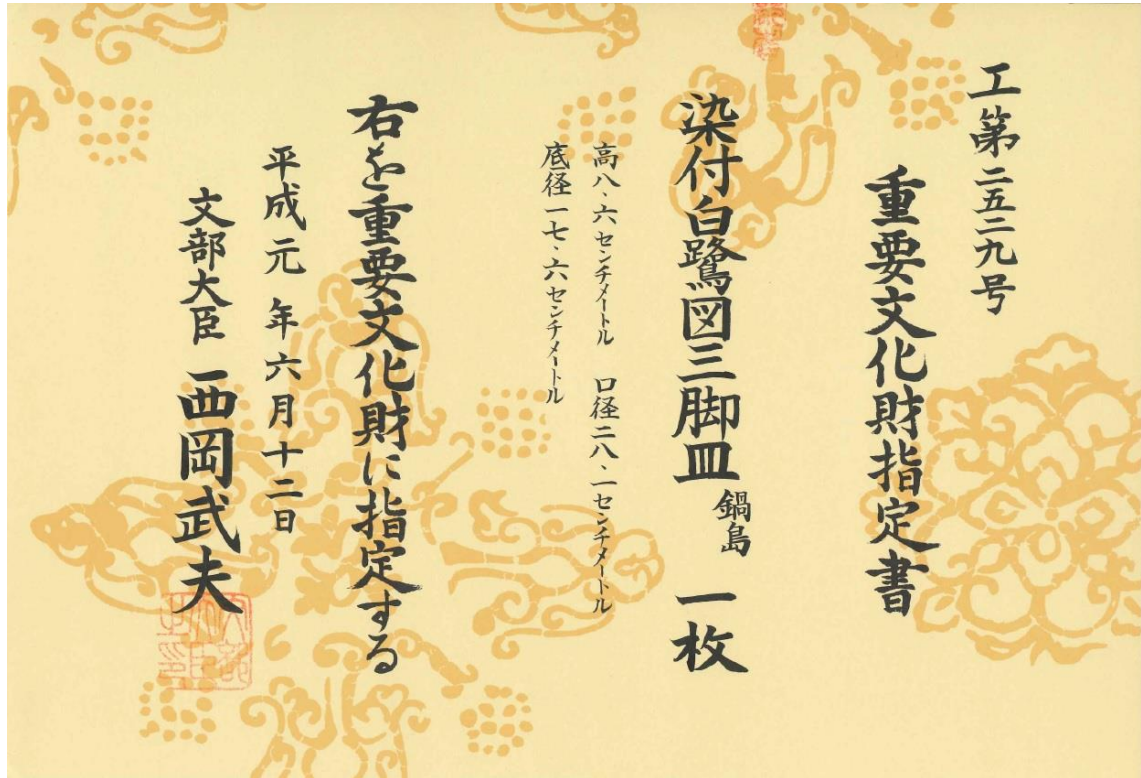 工第二五二九号
重要文化財指定書
染付白鷺図三脚皿 鍋島 一枚
高八・六センチメートル 口径二八・一センチメートル
底径一七・六センチメートル
右を重要文化財に指定する
平成元年六月十二日
文部大臣 西岡武夫